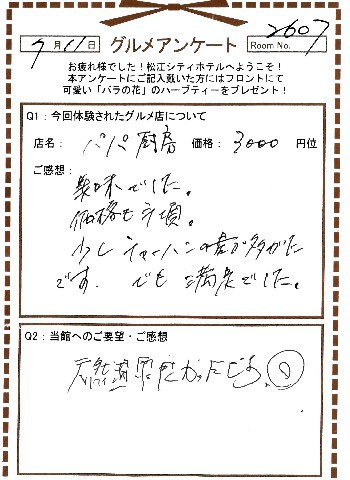 9月11日 グルメアンケート Room No. 2607
お疲れ様でした！松江シティホテルへようこそ！
本アンケートにご記入戴いた方にはフロントにて
可愛い「バラの花」のハーブティーをプレゼント！
Q1：今回体験されたグルメ店について
店名： パパ厨房 価格： 3000 円位
ご感想：
美味でした。
価格も手頃。
少しチャーハンの量が多かた
です. でも満足でした。
Q2：当館へのご要望・ご感想